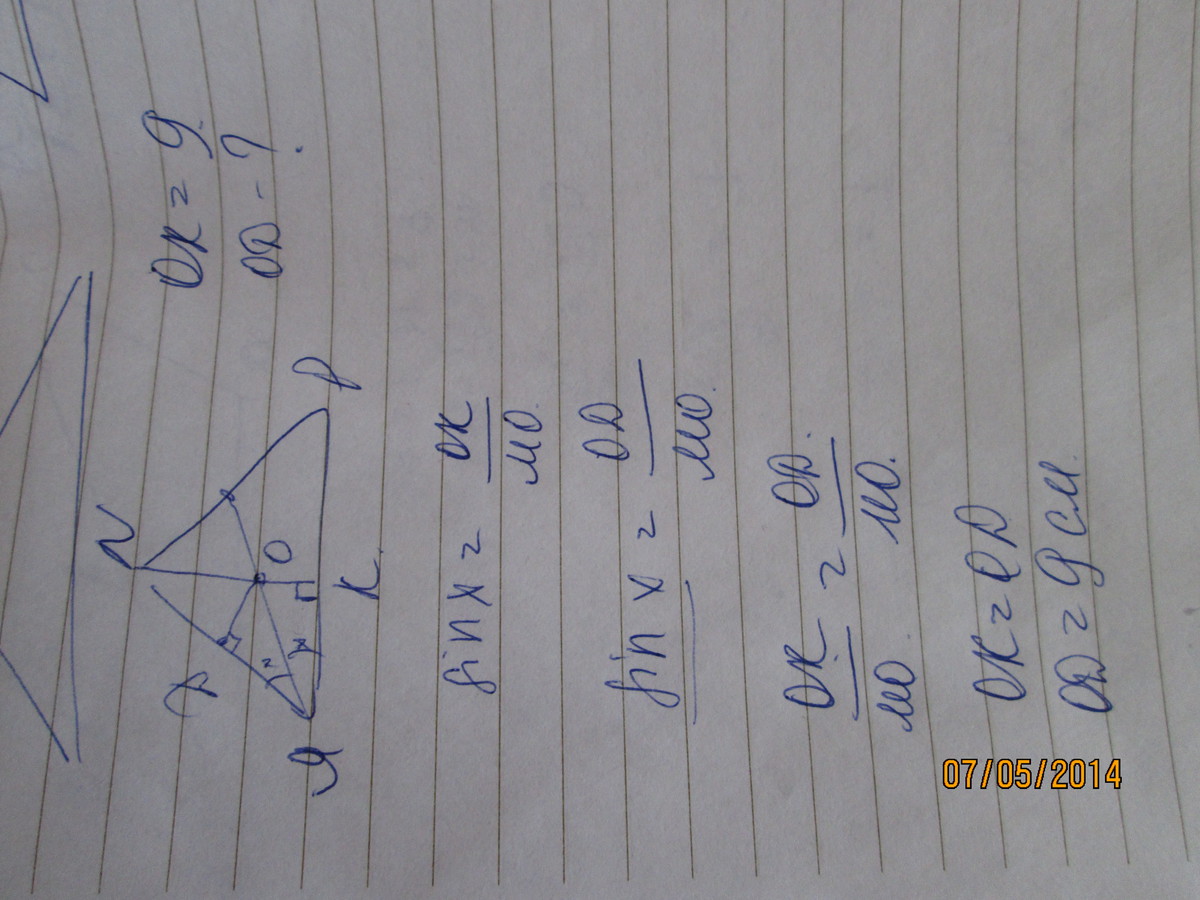 OK = 9.
OD - ?
N
D
O
x
x
M
K.
P
sin x = OK / MO.
sin x = OD / MO.
OK / MO. = OD. / MO.
OK = OD
OD = 9 см.
07/05/2014